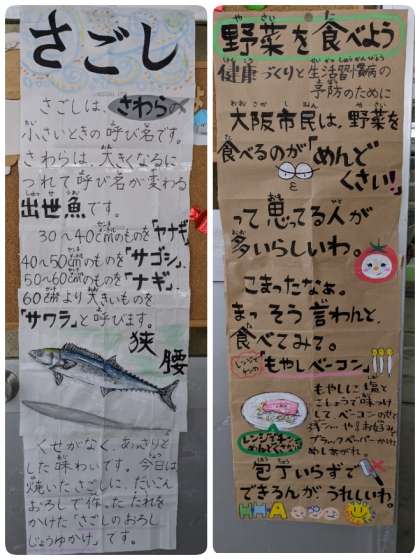 さごし
さごしは、さわらの
小さいときの呼び名です。
さわらは、大きくなるに
つれて呼び名が変わる
出世魚です。
30〜40cmのものを「ヤナギ」
40〜50cmのものを「サゴシ」、
50〜60cmのものを「ナギ」、
60cmより大きいものを
「サワラ」と呼びます。
狭腰
くせがなく、あっさりと
した味わいです。今日は
焼いたさごしに、だいこん
おろしで作ったたれを
かけた「さごしのおろし
じょうゆかけ」です。
野菜を食べよう
健康づくりと生活習慣病の
予防のために
大阪市民は、野菜を
食べるのが「めんど
くさい!」
って思ってる人が
多いらしいわ。
こまったなぁ。
まっ そう言わんと、
食べてみて。
レンジでチン
「もやしベーコン」
もやしに塩と
こしょうで味つけ
して ベーコンのせて
お好みで
ブラックペッパーかけて
めしあがれ。
レンジでチンで
めんどくさくないで
包丁いらずで
できるんがうれしいわ。